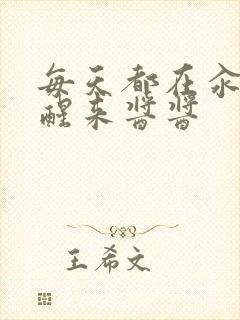 每天都在汆
醒来酱酱
王希文